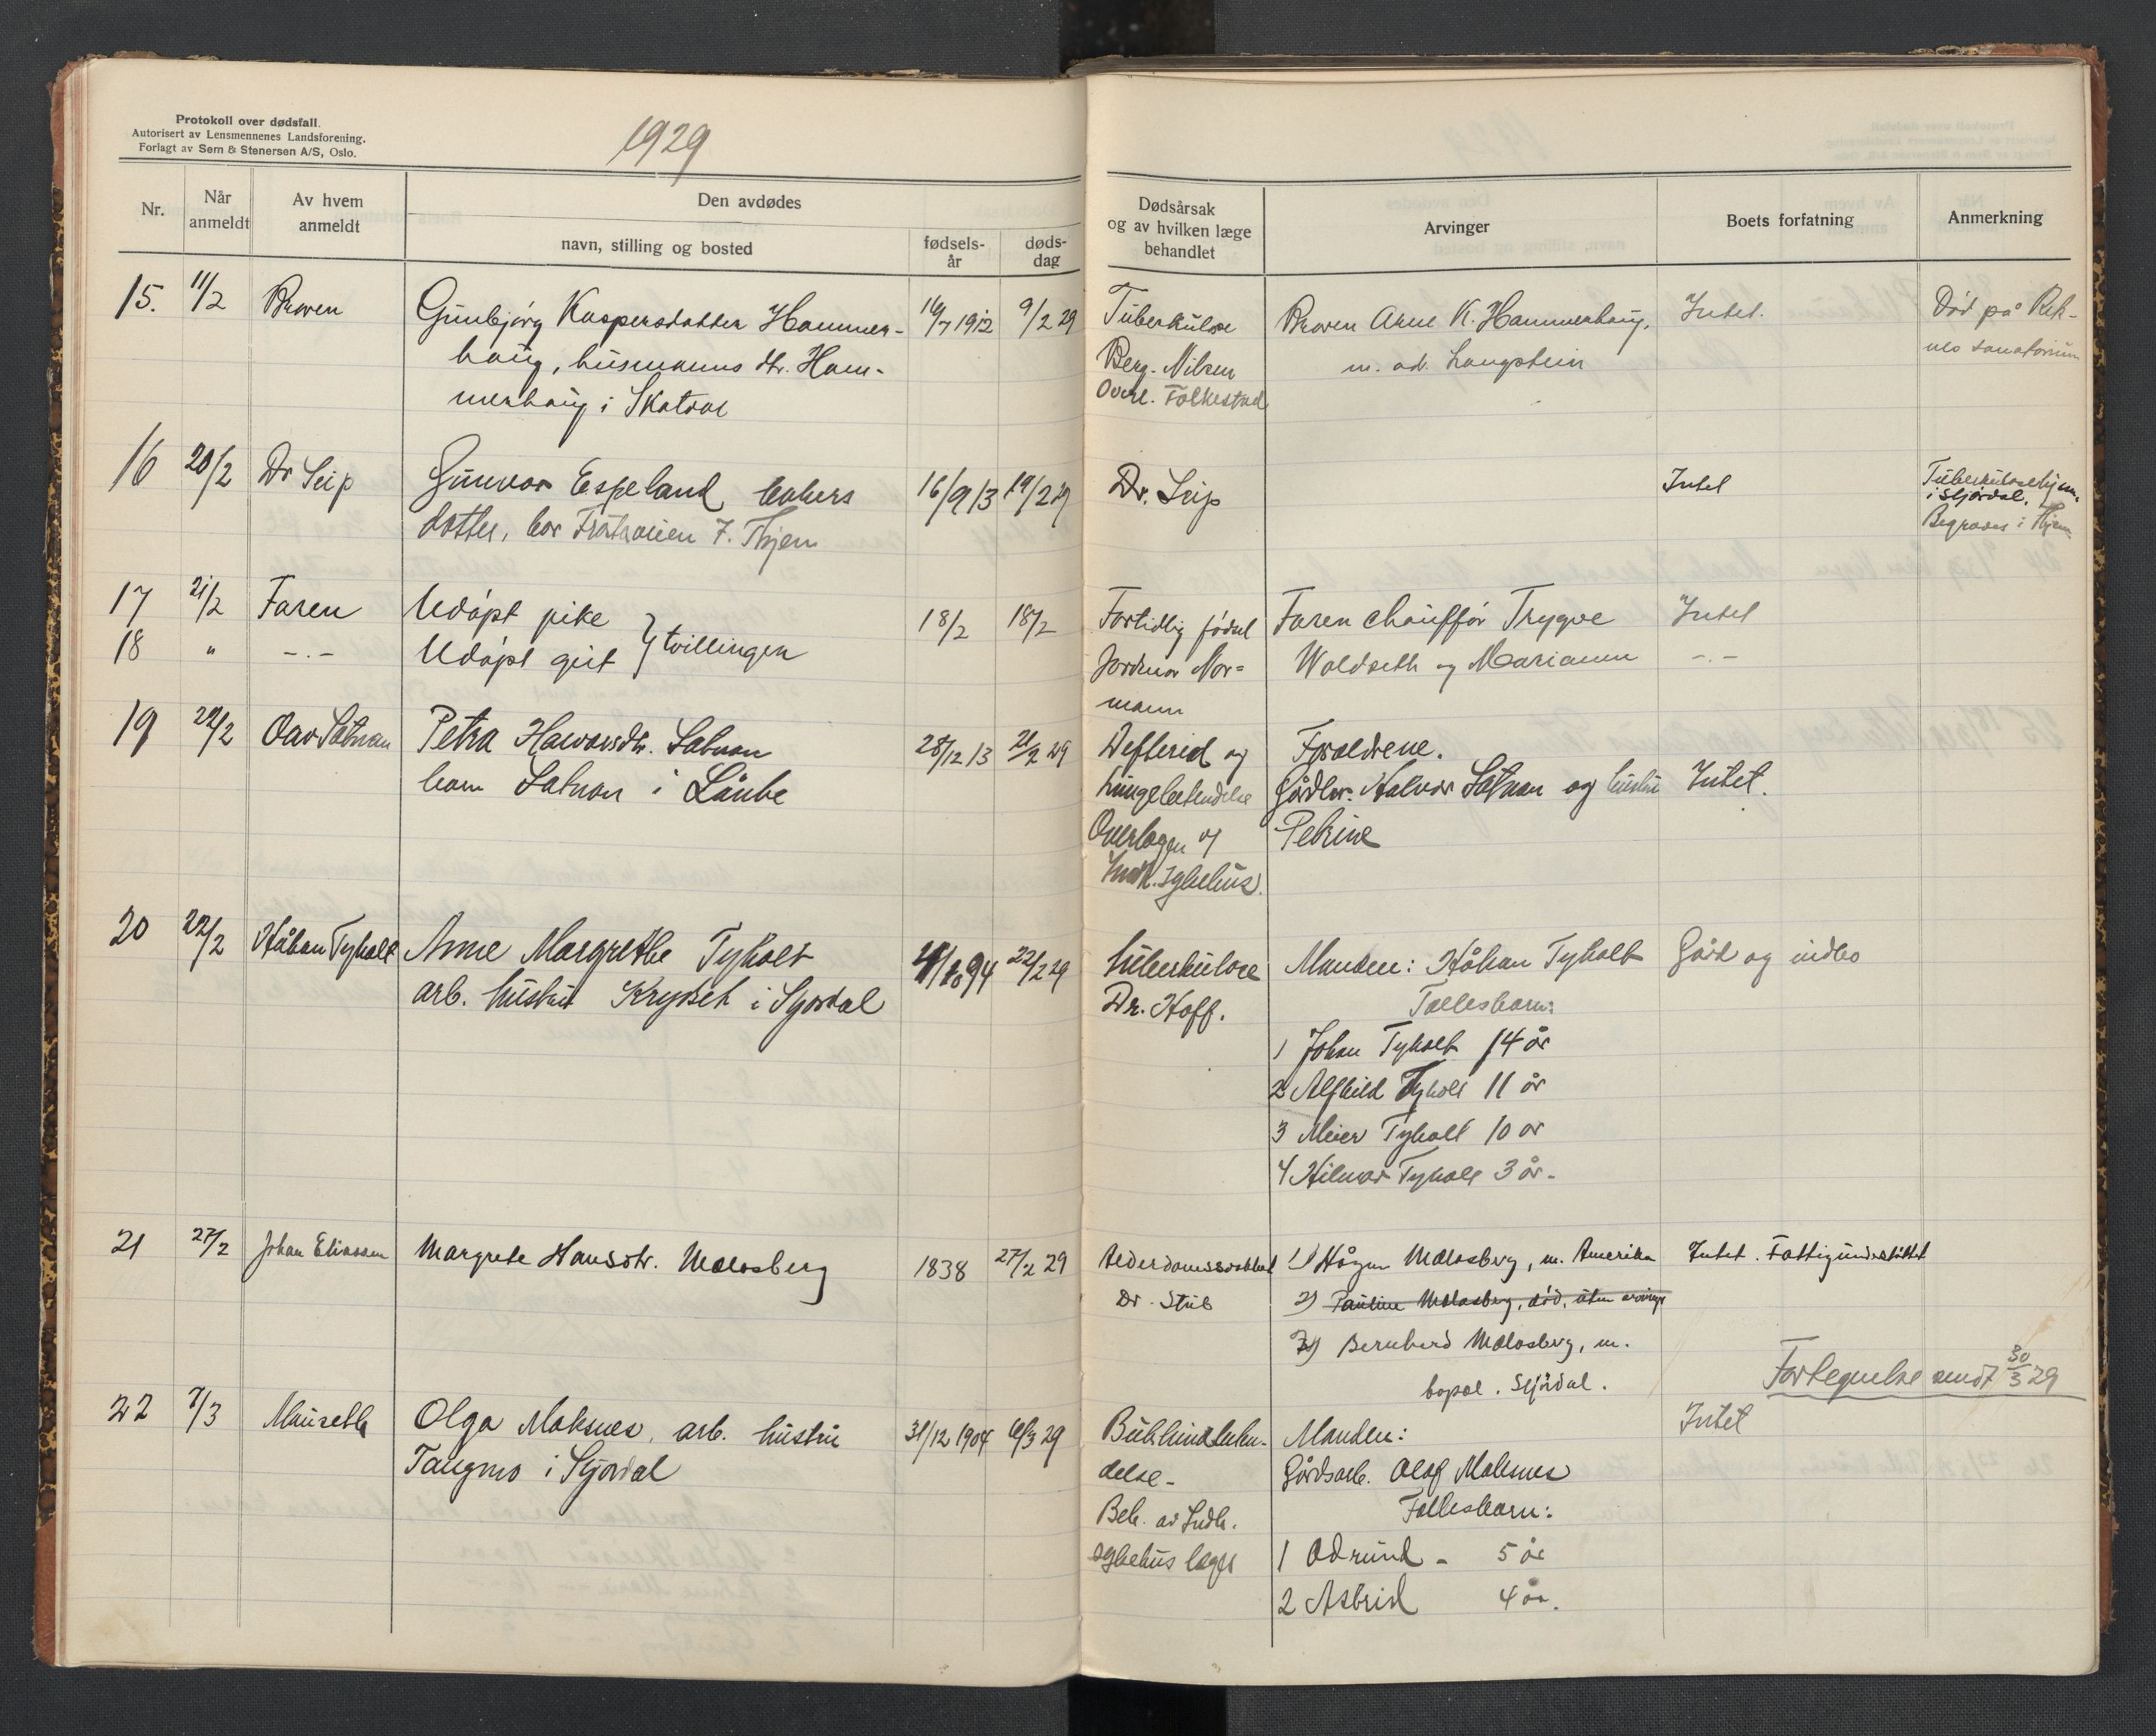 Protokoll over dødsfall.
Autorisert av Lensmennenes Landsforening.
Forlagt av Sem & Stenersen A/S, Oslo.
1929
Nr.
Når anmeldt
Av hvem anmeldt
Den avdødes
navn, stilling og bosted
fødsels-år
døds-dag
Dødsårsak og av hvilken læge behandlet
Arvinger
Boets forfatning
Anmerkning
15. 11/2 Broren Gunbjørg Kaspersdatter Hammer- 16/7 1912 9/2 29 Tuberkulose Broren Arne K. Hammerhaug, Intet. Død på Rek-
haug, husmanns dtr. Ham- Berg-Nilsen m. ad. Langstein nes sanatorium
merhaug i Skatval Overl. Folkestad
16 20/2 Dr Seip Gunvor Espeland 16/9 13 19/2 29 Dr. Seip Intet Tuberkulosehjem.
datter, i Stjørdal.
Begraves i
17 21/2 Faren Udøpt pike 18/2 18/2 Fortidlig fødsel Faren chauffør Trygve Intet
18 " -.- Udøpt gut } tvillinger Jordmor Nor- Woldseth og Mariann -.-
mann
19 22/2 Petra Hawarsdtr. Satnan 28/12 13 21/2 29 Defterid og Foreldrene.
barn Satnan i Lånke lungebetendelse Gårdbr. Halvor Satnan og hustru Intet.
Overlægen v/ Petrine
Innh. sykehus.
20 22/2 Håkan Tyholt Anne Margrethe Tyholt 22/2 29 tuberkulose Manden: Håkan Tyholt Gård og indbo
arb. hustru Krysset i Stjørdal Dr. Hoff. Fællesbarn:
1 Johan Tyholt 14 år
2 Alfhild Tyholt 11 år
3 Meier Tyholt 10 år
4 Hilmar Tyholt 3 år.
21 27/2 Johan Eliassen Margrete Hansdtr. Mælasberg 1838 27/2 29 Alderdomssvakhet 1) Mælasberg, m. Amerika Intet. Fattigunderstøttet
Dr. Stub 2) Pauline Mælasberg, død, uten arvinger
3) Bernhard Mælasberg, m.
bopæl. Stjørdal.
Fortegnelse sendt 30/3 29
22 7/3 Olga Moksnes, arb. hustru 31/12 1904 6/3 29 Bukhindebeten- Manden: Intet
Tangmo i Stjørdal delse- Gårdsarb. Olaf Moksnes
Beh. av Indh. Fællesbarn:
sykehus læge 1 Odrund - 5 år
2 Asbrid 4 år.